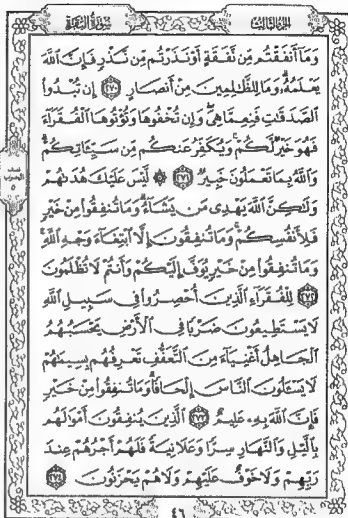 الجزء الثالث سورة البقرة
وَمَا أَنفَقْتُم مِّن نَّفَقَةٍ أَوْ نَذَرْتُم مِّن نَّذْرٍ فَإِنَّ اللَّهَ
يَعْلَمُهُۥ وَمَا لِلظَّٰلِمِينَ مِنْ أَنصَارٍ ٢٧٠ إِن تُبْدُوا
الصَّدَقَٰتِ فَنِعِمَّا هِيَ وَإِن تُخْفُوهَا وَتُؤْتُوهَا الْفُقَرَآءَ
فَهُوَ خَيْرٌ لَّكُمْ وَيُكَفِّرُ عَنكُم مِّن سَيِّـَٔاتِكُمْ
وَاللَّهُ بِمَا تَعْمَلُونَ خَبِيرٌ ٢٧١ ۞ لَّيْسَ عَلَيْكَ هُدَىٰهُمْ
وَلَٰكِنَّ اللَّهَ يَهْدِى مَن يَشَآءُ وَمَا تُنفِقُوا مِنْ خَيْرٍ
فَلِأَنفُسِكُمْ وَمَا تُنفِقُونَ إِلَّا ابْتِغَآءَ وَجْهِ اللَّهِ
وَمَا تُنفِقُوا مِنْ خَيْرٍ يُوَفَّ إِلَيْكُمْ وَأَنتُمْ لَا تُظْلَمُونَ
٢٧٢ لِلْفُقَرَآءِ الَّذِينَ أُحْصِرُوا فِى سَبِيلِ اللَّهِ
لَا يَسْتَطِيعُونَ ضَرْبًا فِى الْأَرْضِ يَحْسَبُهُمُ
الْجَاهِلُ أَغْنِيَآءَ مِنَ التَّعَفُّفِ تَعْرِفُهُم بِسِيمَٰهُمْ
لَا يَسْـَٔلُونَ النَّاسَ إِلْحَافًا وَمَا تُنفِقُوا مِنْ خَيْرٍ
فَإِنَّ اللَّهَ بِهِۦ عَلِيمٌ ٢٧٣ الَّذِينَ يُنفِقُونَ أَمْوَٰلَهُم
بِالَّيْلِ وَالنَّهَارِ سِرًّا وَعَلَانِيَةً فَلَهُمْ أَجْرُهُمْ عِندَ
رَبِّهِمْ وَلَا خَوْفٌ عَلَيْهِمْ وَلَا هُمْ يَحْزَنُونَ ٢٧٤
٤٦
نصف
الحزب
٥